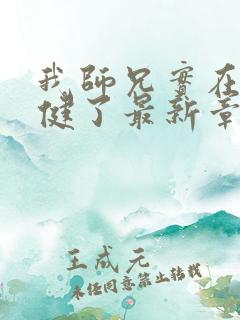 我師兄實在
健了最新章
王成元
未經同意禁止轉載